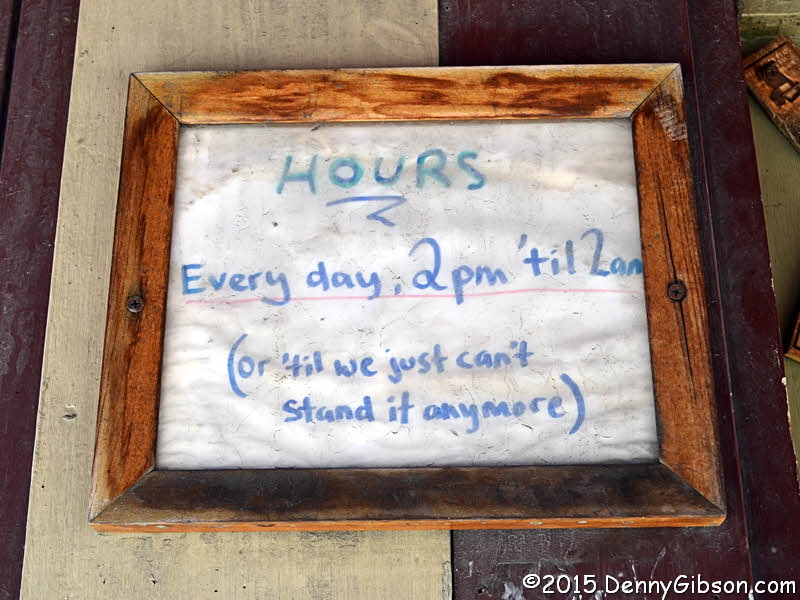 HOURS
Every day, 2pm 'til 2am
(or 'til we just can't
stand it anymore)
©2015 DennyGibson.com